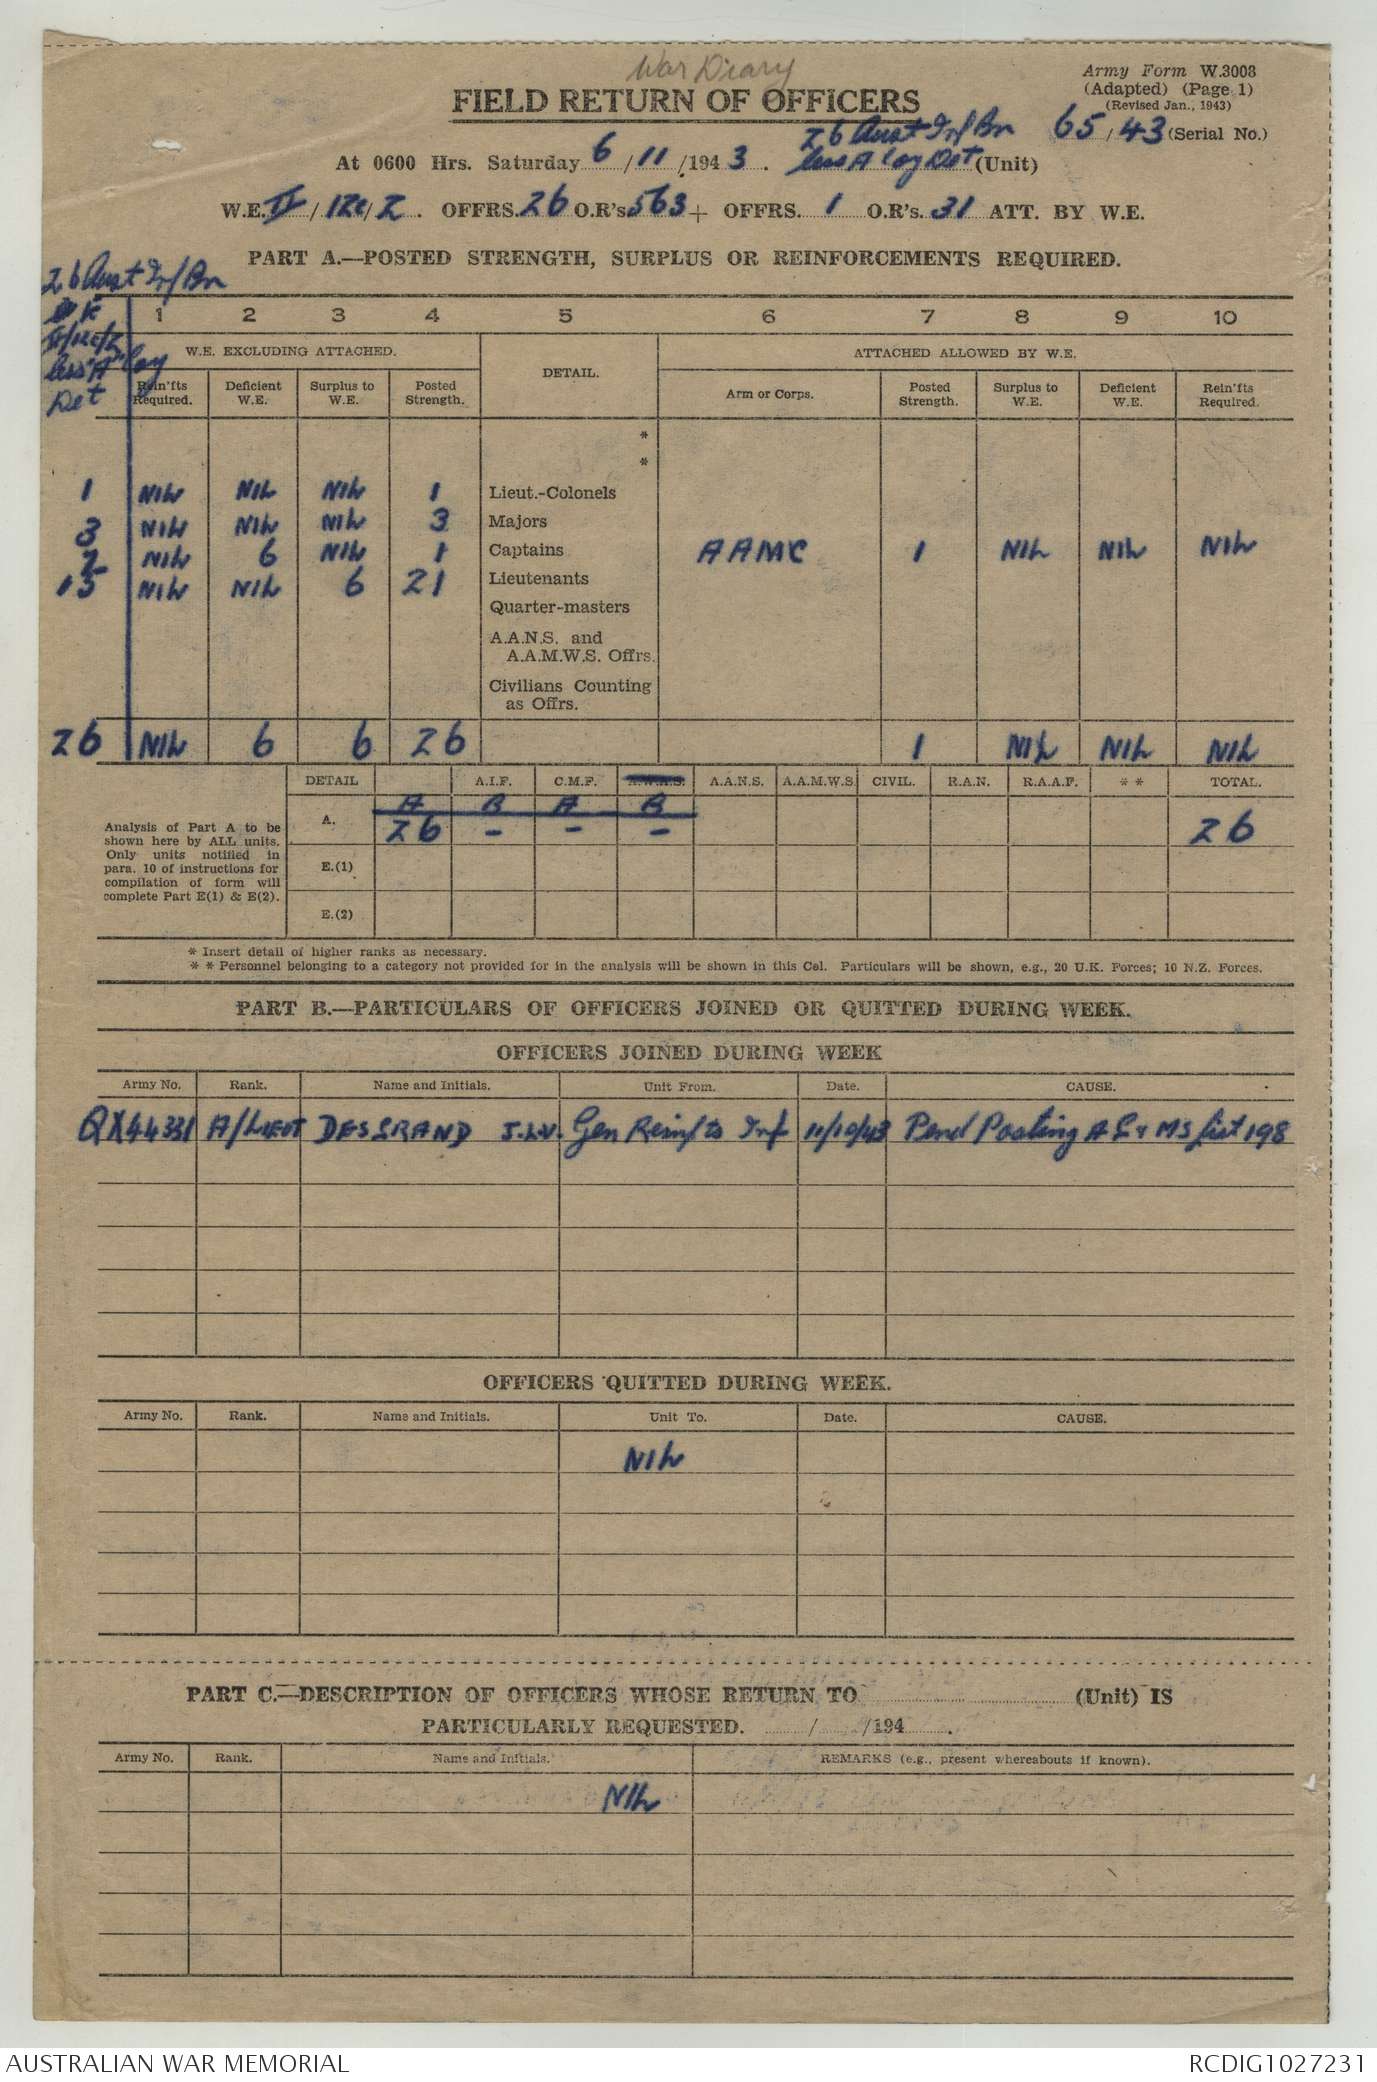 War Diary
Army Form W.3008
(Adapted) (Page 1)
(Revised Jan., 1943)
FIELD RETURN OF OFFICERS
26 Aust Inf Bn 65/43 (Serial No.)
At 0600 Hrs. Saturday 6/11/1943. less A Coy Det (Unit)
W.E. II/12c/2. OFFRS. 26 O.R's 563 + OFFRS. 1 O.R's. 31 ATT. BY W.E.
PART A.—POSTED STRENGTH, SURPLUS OR REINFORCEMENTS REQUIRED.
26 Aust Inf Bn
W E
II/12c/2
less "A" Coy
Det
1 2 3 4 5 6 7 8 9 10
W.E. EXCLUDING ATTACHED. DETAIL. ATTACHED ALLOWED BY W.E.
Rein'fts Required. Deficient W.E. Surplus to W.E. Posted Strength. Arm or Corps. Posted Strength. Surplus to W.E. Deficient W.E. Rein'fts Required.
*
*
1 NIL NIL NIL 1 Lieut.-Colonels
3 NIL NIL NIL 3 Majors
7 NIL 6 NIL 1 Captains AAMC 1 NIL NIL NIL
15 NIL NIL 6 21 Lieutenants
Quarter-masters
A.A.N.S. and
A.A.M.W.S. Offrs.
Civilians Counting
as Offrs.
26 NIL 6 6 26 1 NIL NIL NIL
DETAIL A.I.F. C.M.F. A.W.A.S. A.A.N.S. A.A.M.W.S. CIVIL. R.A.N. R.A.A.F. * * TOTAL.
A B A B
A. 26 - - - 26
Analysis of Part A to be
shown here by ALL units.
Only units notified in
para. 10 of instructions for
compilation of form will
complete Part E(1) & E(2).
E.(1)
E.(2)
* Insert detail of higher ranks as necessary.
* * Personnel belonging to a category not provided for in the analysis will be shown in this Col. Particulars will be shown, e.g., 20 U.K. Forces; 10 N.Z. Forces.
PART B.—PARTICULARS OF OFFICERS JOINED OR QUITTED DURING WEEK.
OFFICERS JOINED DURING WEEK
Army No. Rank. Name and Initials. Unit From. Date. CAUSE.
QX44331 A/LIEUT DESGRAND J.L.V. Gen Reinfts Inf 11/10/43 Pend Posting A G & MS list 198
OFFICERS QUITTED DURING WEEK.
Army No. Rank. Name and Initials. Unit To. Date. CAUSE.
NIL
PART C.—DESCRIPTION OF OFFICERS WHOSE RETURN TO (Unit) IS
PARTICULARLY REQUESTED. / /194 .
Army No. Rank. Name and Initials. REMARKS (e.g., present whereabouts if known).
NIL
AUSTRALIAN WAR MEMORIAL RCDIG1027231